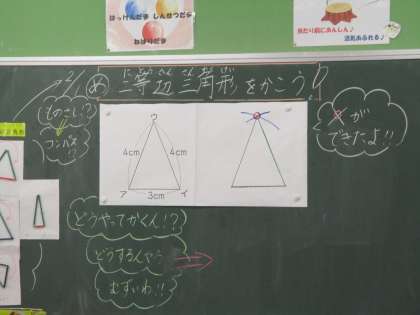 はっけんだま
しんせつだま
おはりだま
当たり前にあんしん♪
活気あふれる♪
め 二等辺三角形をかこう!
にとうへんさんかくけい
ものさし!?
コンパス!?
ウ
4cm
4cm
ア
3cm
イ
×が
できたよ!!
どうやってかくん!?
どうするんやろ
むずいわ!!